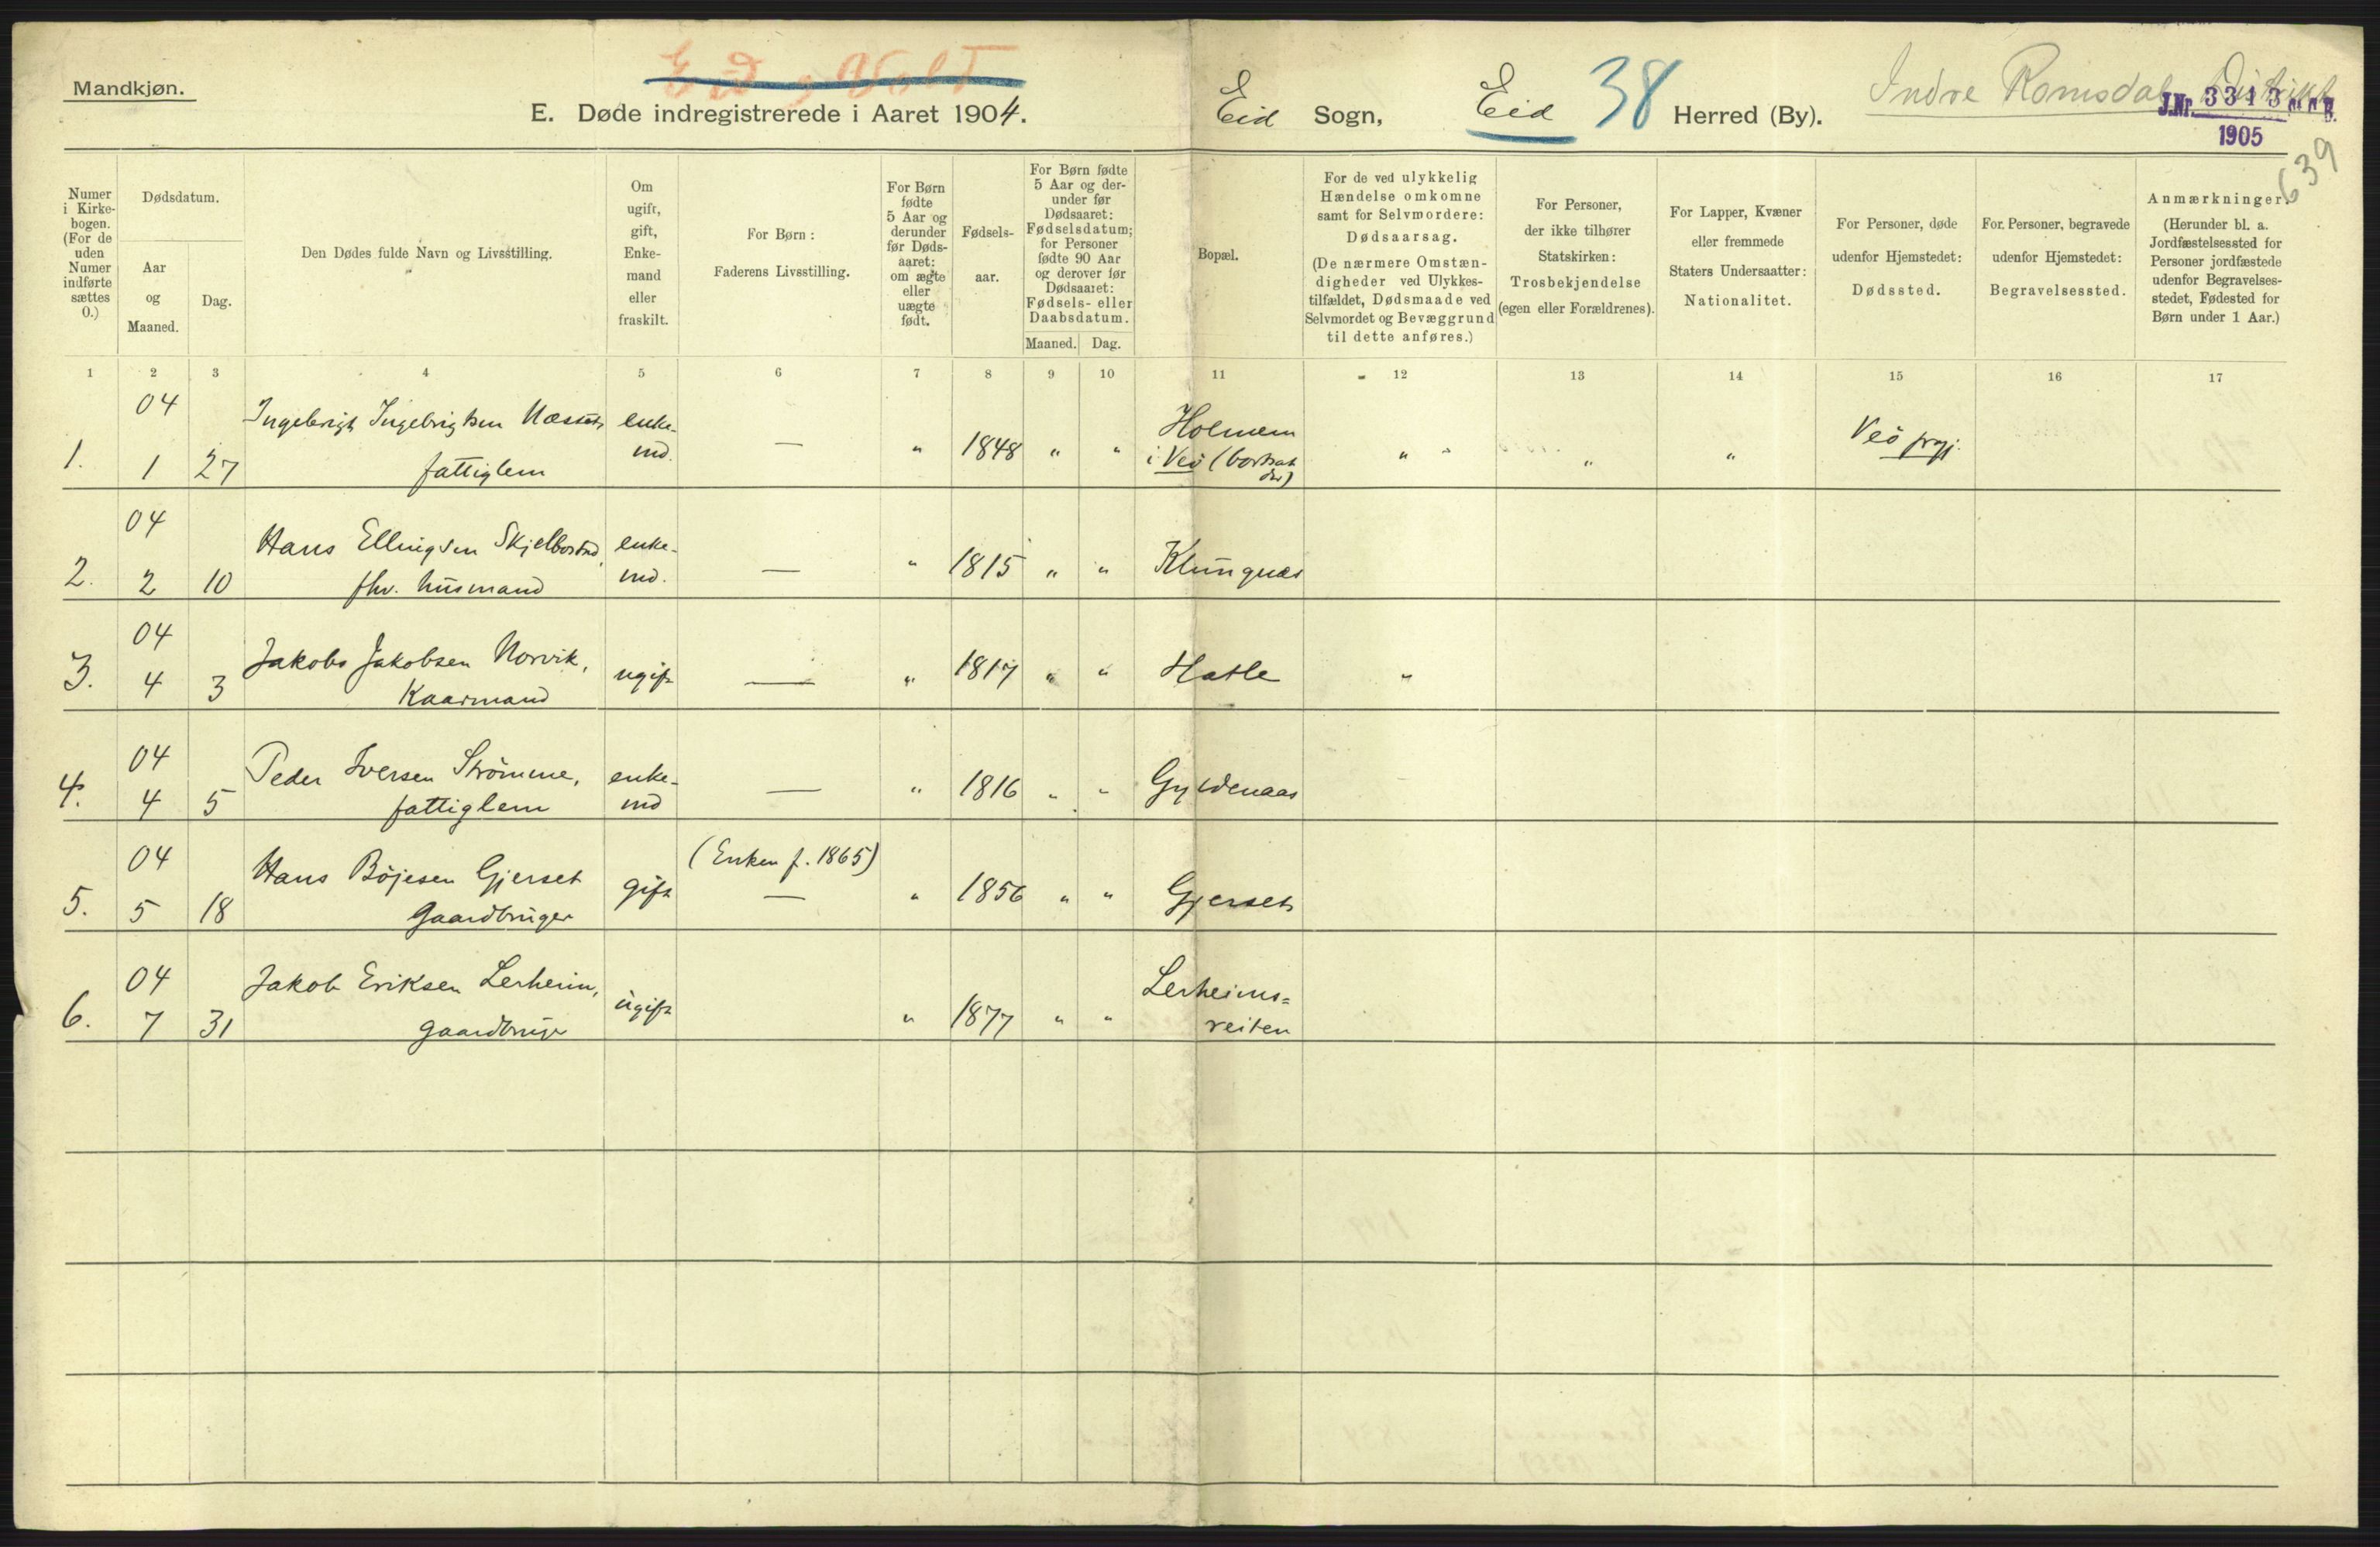 Mandkjøn.
E. Døde indregistrerede i Aaret 1904.
Eid Sogn, Eid 38 Herred (By).
Indre Romsdal Distrikt
J.Nr. 3313
1905
639
Numer i Kirkebogen. (For de uden Numer indførte sættes 0.)
Dødsdatum.
Aar og Maaned.
Dag.
Den Dødes fulde Navn og Livsstilling.
Om ugift, gift, Enkemand eller fraskilt.
For Børn: Faderens Livsstilling.
For Børn fødte 5 Aar og derunder før Dødsaaret: om ægte eller uægte født.
Fødselsaar.
For Børn fødte 5 Aar og derunder før Dødsaaret: Fødselsdatum; for Personer fødte 90 Aar og derover før Dødsaaret: Fødsels- eller Daabsdatum.
Maaned. Dag.
Bopæl.
For de ved ulykkelig Hændelse omkomne samt for Selvmordere: Dødsaarsag. (De nærmere Omstændigheder ved Ulykkestilfældet, Dødsmaade ved Selvmordet og Bevæggrund til dette anføres.)
For Personer, der ikke tilhører Statskirken: Trosbekjendelse (egen eller Forældrenes).
For Lapper, Kvæner eller fremmede Staters Undersaatter: Nationalitet.
For Personer, døde udenfor Hjemstedet: Dødssted.
For Personer, begravede udenfor Hjemstedet: Begravelsessted.
Anmærkninger. (Herunder bl. a. Jordfæstelsessted for Personer jordfæstede udenfor Begravelsesstedet, Fødested for Børn under 1 Aar.)
1 2 3 4 5 6 7 8 9 10 11 12 13 14 15 16 17
1. 04 1 27 Ingebrigt Ingebrigtsen Næsset, fattiglem enkemd. — " 1848 " " Holmem i Veö " " " Veö prgj.
2. 04 2 10 Hans Ellingsen Skjelbostad, fhv. husmand enkemd. — " 1815 " " Klungnæs
3. 04 4 3 Jakob Jakobsen Norvik, Kaarmand ugift — " 1817 " " Hatle "
4. 04 4 5 Peder Iversen Strömme, fattiglem enkemd — " 1816 " " Gyldenaas
5. 04 5 18 Hans Böjesen Gjerset Gaardbruger gift (Enken f. 1865) — " 1856 " " Gjerset
6. 04 7 31 Jakob Eriksen Lerheim, gaardbruger ugift " 1877 " " Lerheims=reiten